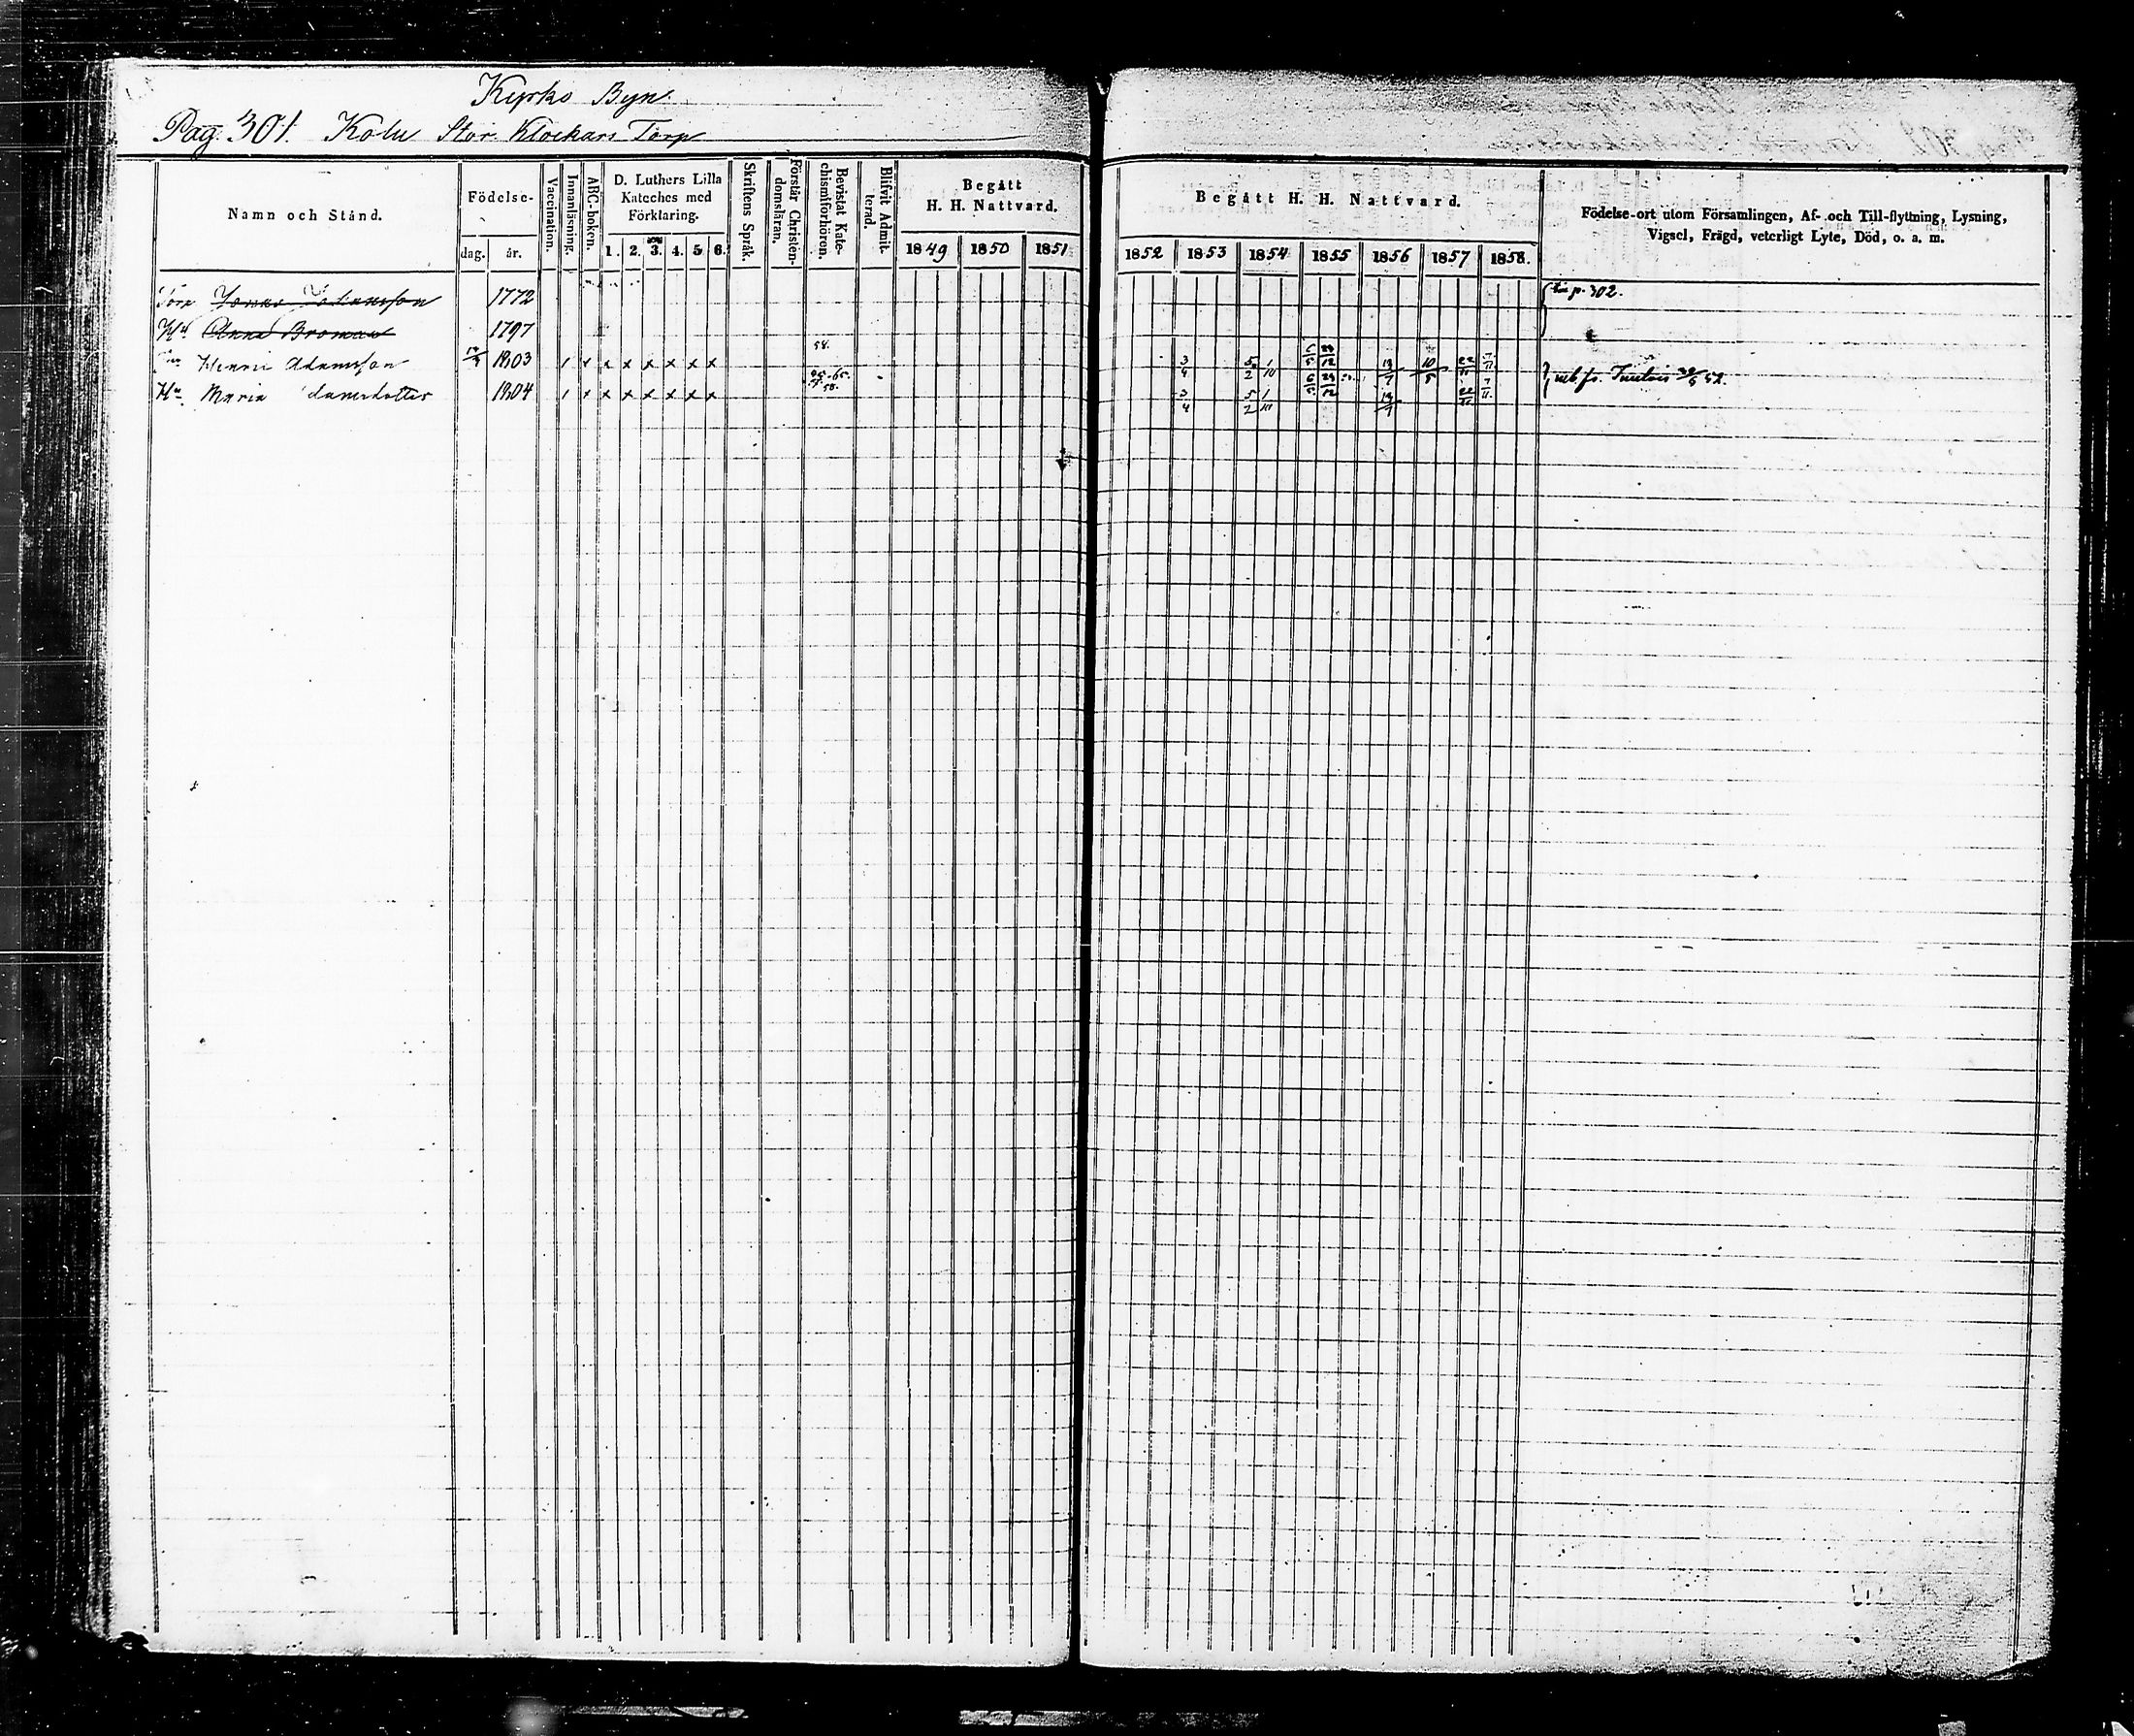 Kyrko Byn
Pag. 301. Kolu Stor Klockars Torp
Namn och Stånd.
Födelse-
dag. år.
Vaccination.
Innanläsning.
ABC-boken.
D. Luthers Lilla
Kateches med
Förklaring.
1. 2. 3. 4. 5. 6.
Skriftens Språk.
Förstår Christen-
domsläran.
Bevistat Kate-
chismiförhören.
Blifvit Admit-
terad.
Begått
H. H. Nattvard.
1849 1850 1851
Begått H. H. Nattvard.
1852 1853 1854 1855 1856 1857 1858.
Födelse-ort utom Församlingen, Af- och Till-flyttning, Lysning,
Vigsel, Frägd, veterligt Lyte, Död, o. a. m.
Torp 1772 p. 302.
Hu Anna Broman 1797
58.
Henric Adamsson 1803 x x x x x x x 3/4 5/2 1/10 6/5 23/12 13/7 10/5 22/11 7/11
Hu Maria 1804 x x x x x x x 3/4 5/2 1/10 6/5 23/12 13/7 22/11 7/11